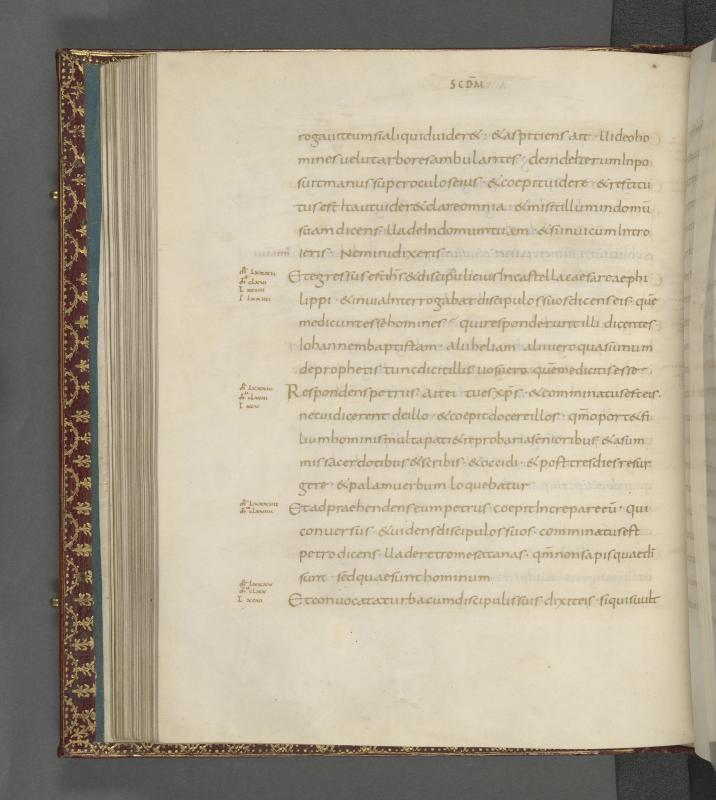 SCDM
rogauit eum si aliquid uider& · & aspitiens ait · Uideo ho
mines uelut arbores ambulantes · deinde iterum Inpo
suit manus super oculos eius · & coepit uidere · & restitu
tus est Ita ut uider& clare omnia · & misit illum in domū
suam dicens · Uade In domum tuam · & si In uicum Intro
ieris · Nemini dixeris ·
Et egressus est ihs & discipuli eius In castella caesareae phi
lippi · & in uia Interrogabat discipulos suos dicens eis · quē
me dicunt esse homines · qui responderunt illi dicentes ·
Iohannem baptistam · alii heliam · alii uero quasi unum
de prophetis · tunc dicit illis · uos uero quē me dicitis esse ·
Respondens petrus ait ei · tu es xps · & comminatus est eis ·
ne cui dicerent de illo · & coepit docere illos · qm̄ oport& fi
lium hominis multa pati & reprobari a senioribus · & a sum
mis sacerdotibus & scribis · & occidi · & post tres dies resur
gere · & palam uerbum loquebatur
Et adpraehendens eum petrus coepit Increpare eū · qui
conuersus · & uidens discipulos suos · comminatus est
petro dicens · Uade retro me satanas · qm̄ non sapis quae dī
sunt · sed quae sunt hominum
Et conuocata turba cum discipulis suis dixit eis · si quis uult